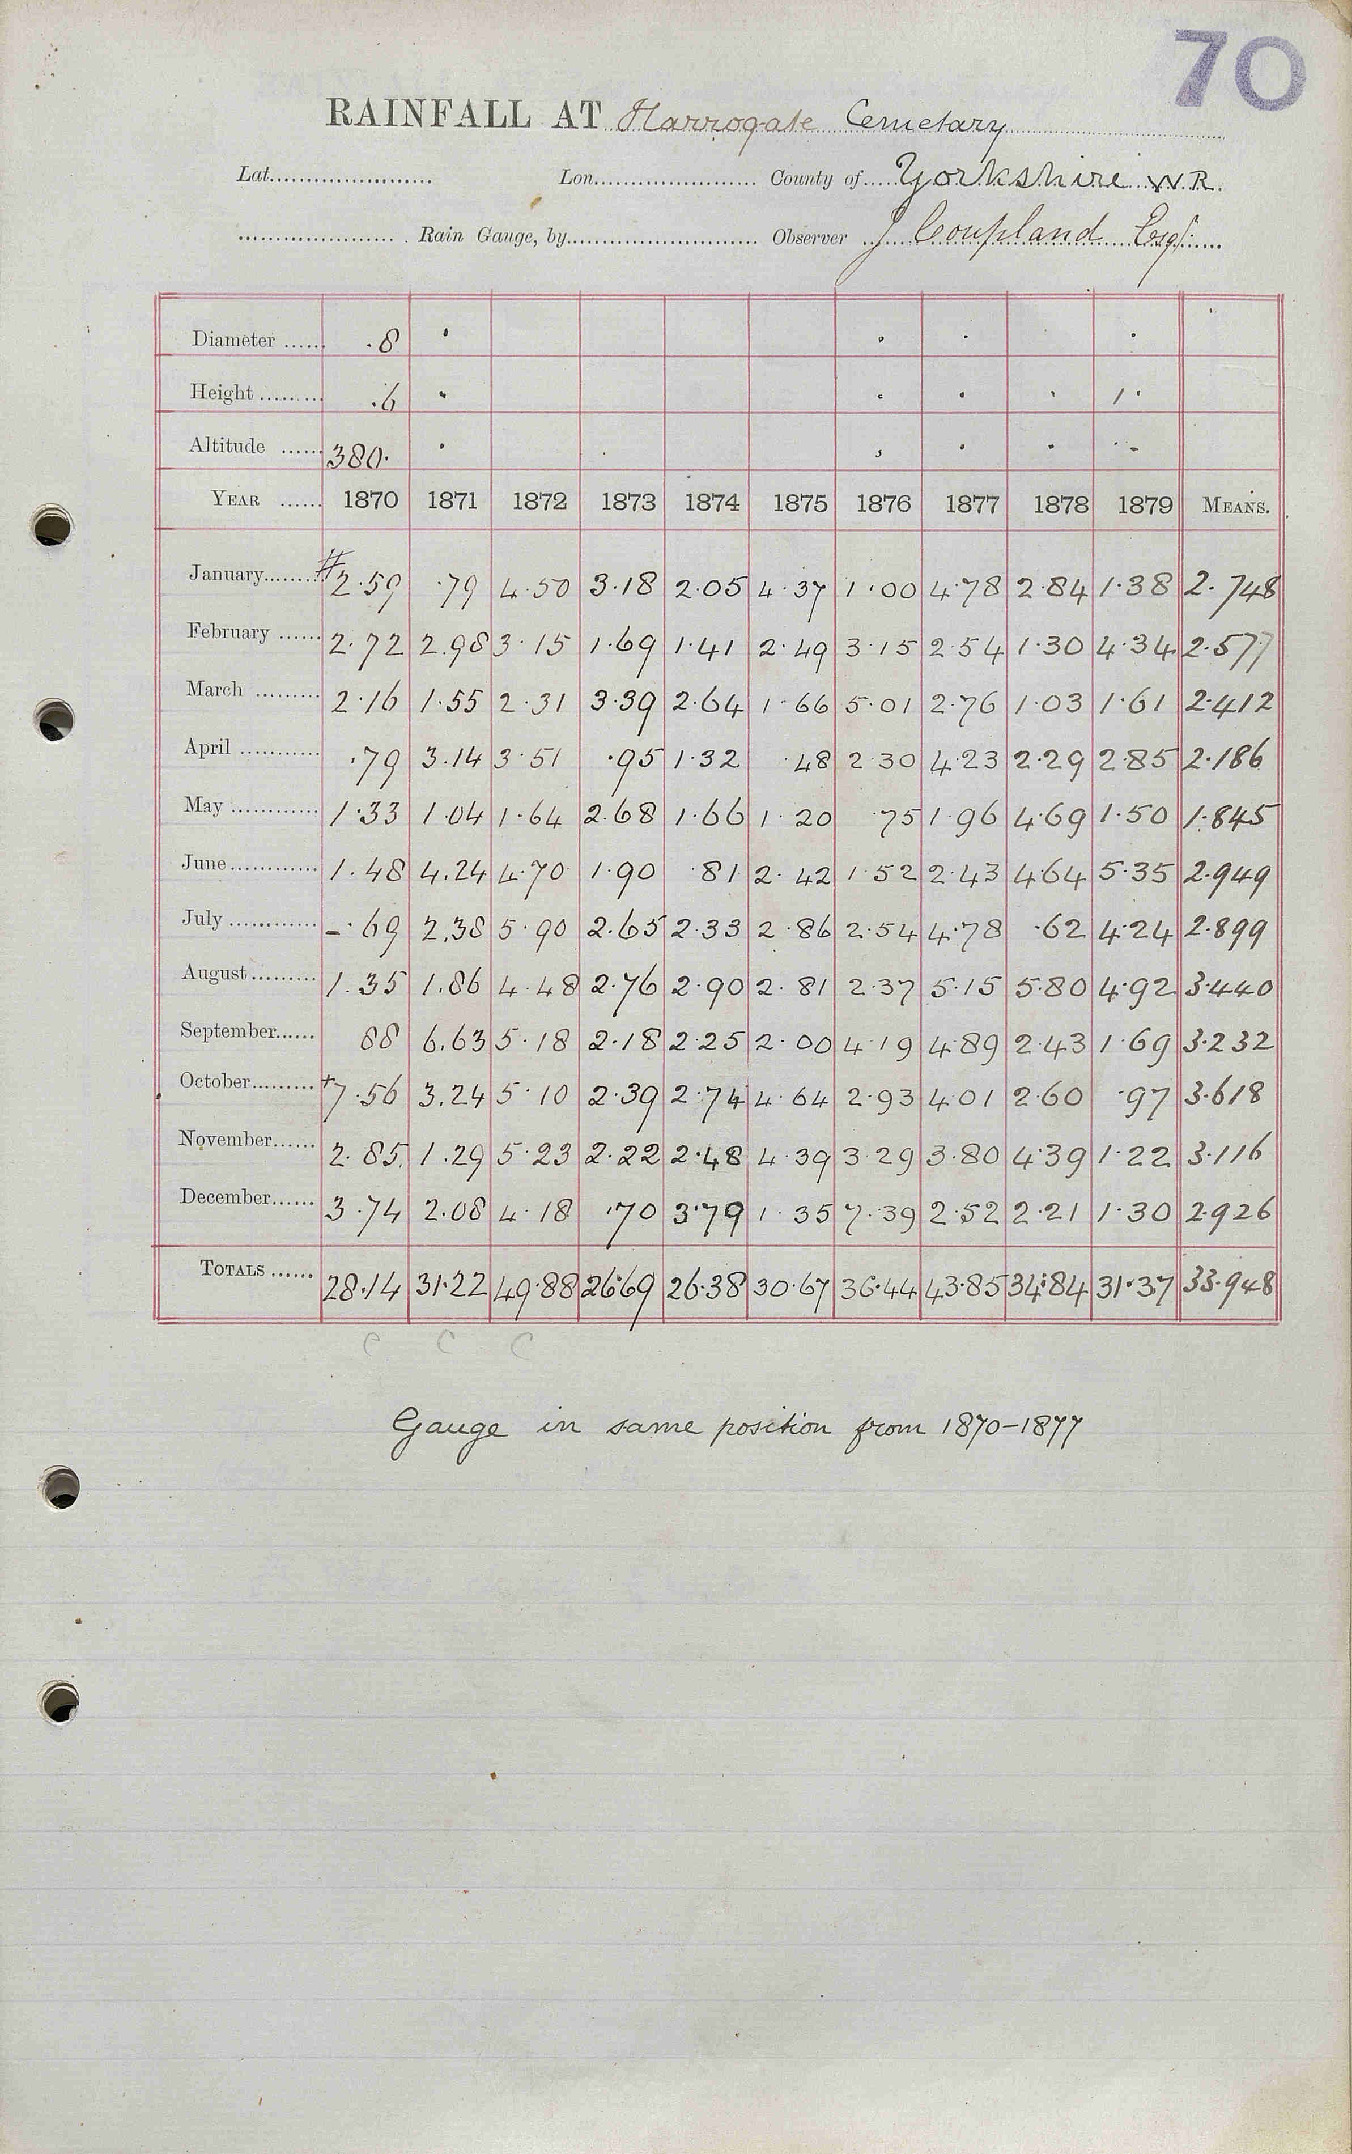 70
RAINFALL AT Harrogate Cemetary
Lat. Lon. County of Yorkshire W.R.
Rain Gauge, by Observer J Coupland Esq
Diameter ...... .8
Height ......... .6
Altitude ...... 380.
YEAR ...... 1870 1871 1872 1873 1874 1875 1876 1877 1878 1879 MEANS.
January........ #2.59 .79 4.50 3.18 2.05 4.37 1.00 4.78 2.84 1.38 2.748
February ...... 2.72 2.98 3.15 1.69 1.41 2.49 3.15 2.54 1.30 4.34 2.577
March ......... 2.16 1.55 2.31 3.39 2.64 1.66 5.01 2.76 1.03 1.61 2.412
April ........... .79 3.14 3.51 .95 1.32 .48 2.30 4.23 2.29 2.85 2.186
May ............ 1.33 1.04 1.64 2.68 1.66 1.20 75 1.96 4.69 1.50 1.845
June............ 1.48 4.24 4.70 1.90 .81 2.42 1.52 2.43 4.64 5.35 2.949
July ............ -.69 2.38 5.90 2.65 2.33 2.86 2.54 4.78 .62 4.24 2.899
August......... 1.35 1.86 4.48 2.76 2.90 2.81 2.37 5.15 5.80 4.92 3.440
September...... 88 6.63 5.18 2.18 2.25 2.00 4.19 4.89 2.43 1.69 3.232
October......... +7.56 3.24 5.10 2.39 2.74 4.64 2.93 4.01 2.60 .97 3.618
November...... 2.85 1.29 5.23 2.22 2.48 4.39 3.29 3.80 4.39 1.22 3.116
December...... 3.74 2.08 4.18 .70 3.79 1.35 7.39 2.52 2.21 1.30 2.926
TOTALS ...... 28.14 31.22 49.88 26.69 26.38 30.67 36.44 43.85 34.84 31.37 33.948
c c c
Gauge in same position from 1870-1877